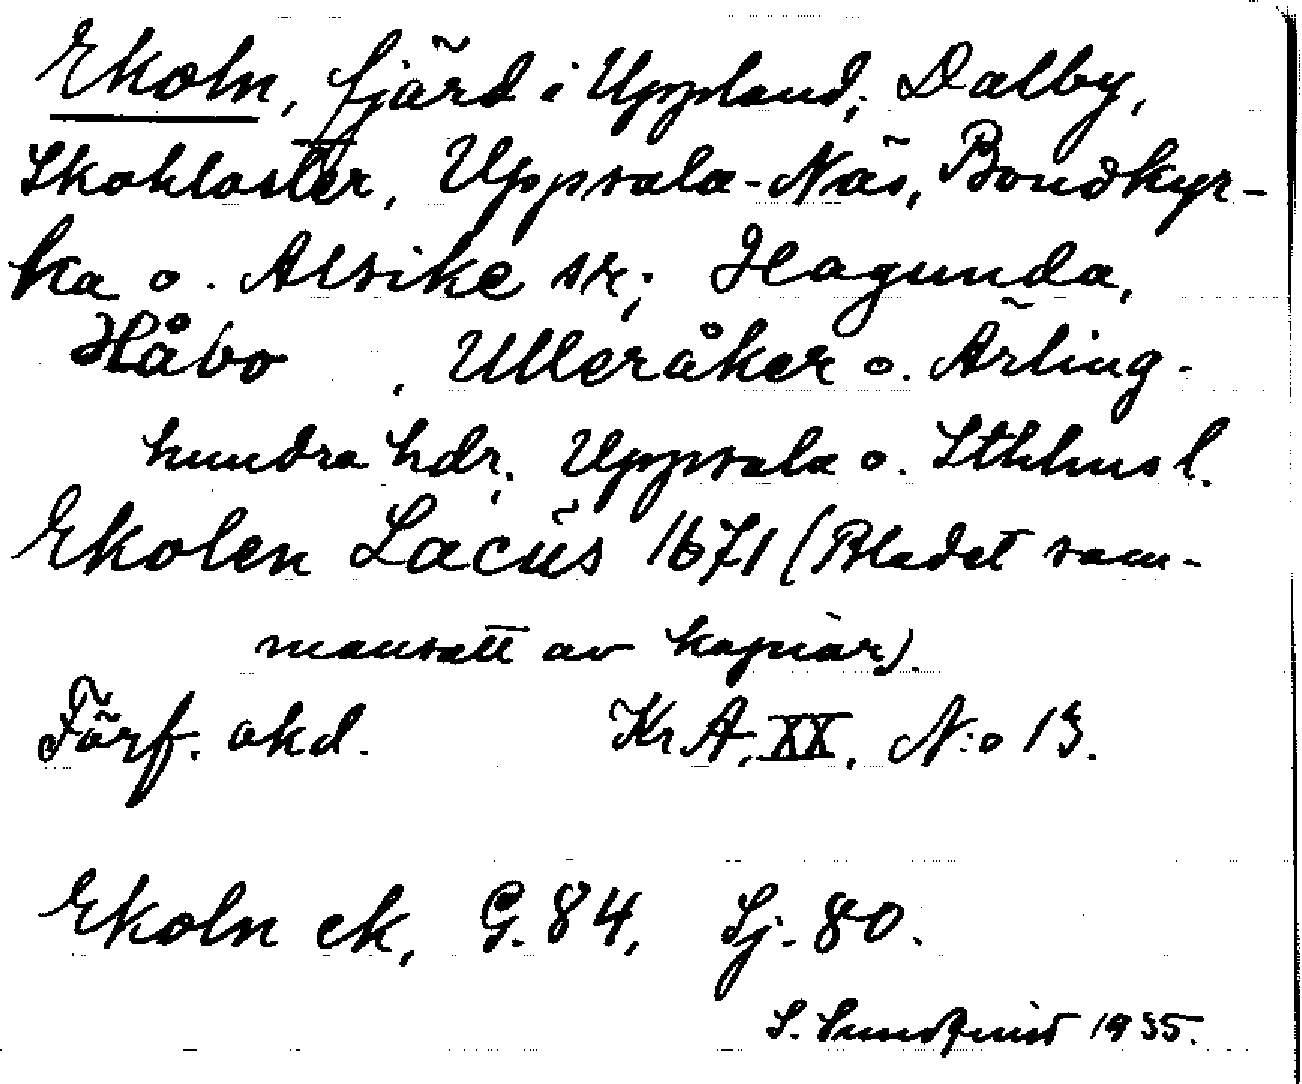 Ekoln, fjärd i Uppland; Dalby,
Skokloster, Uppsala-Näs, Bondkyr-
ka o. Alsike sr; Hagunda,
Håbo , Ulleråker o. Ärling-
hundra hdr, Uppsala o. Sthlms l.
Ekolen Lacus 1671 (Bladet sam-
mansatt av kopiar).
Förf. okd. KrA, XX, N:o 13.
Ekoln ek, G. 84, Sj. 80.
S. Sundquist 1935.